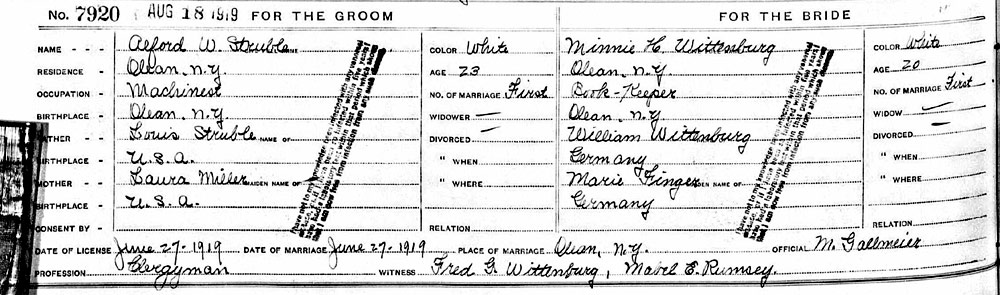 No. 7920 AUG 18 1919 FOR THE GROOM FOR THE BRIDE
NAME - - - Alford W. Struble COLOR White Minnie H. Wittenburg COLOR White
RESIDENCE - - Olean, N.Y. AGE 23 Olean, N.Y. AGE 20
OCCUPATION - - Machinest NO. OF MARRIAGE First Book-Keeper NO. OF MARRIAGE First
BIRTHPLACE - - Olean, N.Y. WIDOWER — Olean, N.Y. WIDOW —
FATHER - - Louis Struble NAME OF DIVORCED — William Wittenburg DIVORCED —
BIRTHPLACE - - U.S.A. " WHEN Germany " WHEN
MOTHER - - Laura Miller MAIDEN NAME OF " WHERE Marie Finger MAIDEN NAME OF " WHERE
BIRTHPLACE - - U.S.A. Germany
CONSENT BY - - RELATION RELATION
DATE OF LICENSE June 27-1919 DATE OF MARRIAGE June 27-1919 PLACE OF MARRIAGE Olean, N.Y. OFFICIAL M. Gallmeier
PROFESSION Clergyman WITNESS Fred G. Wittenburg, Mabel E. Rumsey.